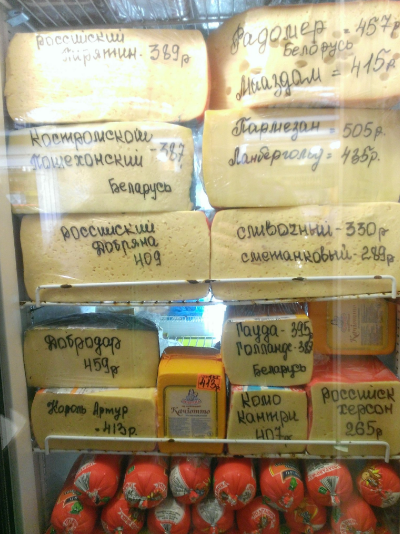 российский
Пирятин - 389р
Радомер = 457р
Беларусь
Мааздам = 415р.
Костромской
Пошехонский - 387
Беларусь
Пармезан = 505р.
Ландергольд = 435р.
российский
Добряна
409
сливочный - 330
сметанковый - 289р.
Добродар
459р
Гауда - 395
Голландс - 383
Беларусь
Король Артур
= 413р.
Комо
кантри
407
Российск
херсон
265р